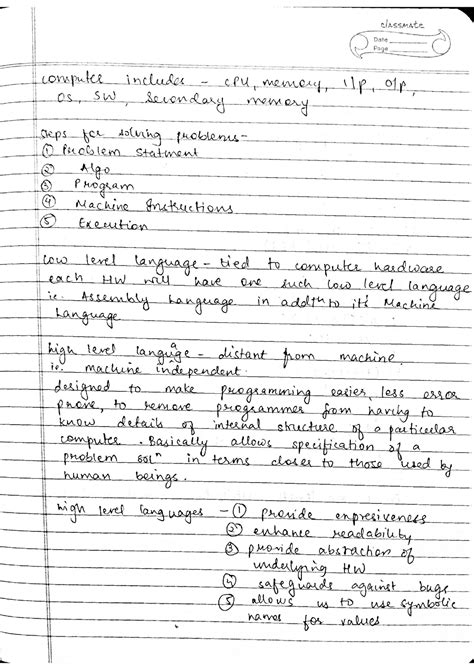 classmate
Date
Page
computer includes - CPU, memory, I/p, O/p,
OS, SW, Secondary memory
steps for solving problems-
① Problem Statment
② Algo
③ Program
④ Machine Instructions
⑤ Execution
low level language - tied to computer hardware
each HW will have one such low level language
ie. Assembly language in addtn to it's Machine
Language
high level language - distant from machine.
ie. machine independent
designed to make programming easier, less error
prone, to remove programmer from having to
know details of internal structure of a particular
computer. Basically allows specification of a
problem soln in terms closer to those used by
human beings.
high level languages - ① provide expresiveness
② enhance readability
③ provide abstraction of
underlying HW
④ safeguards against bugs
⑤ allows us to use symbolic
names for values